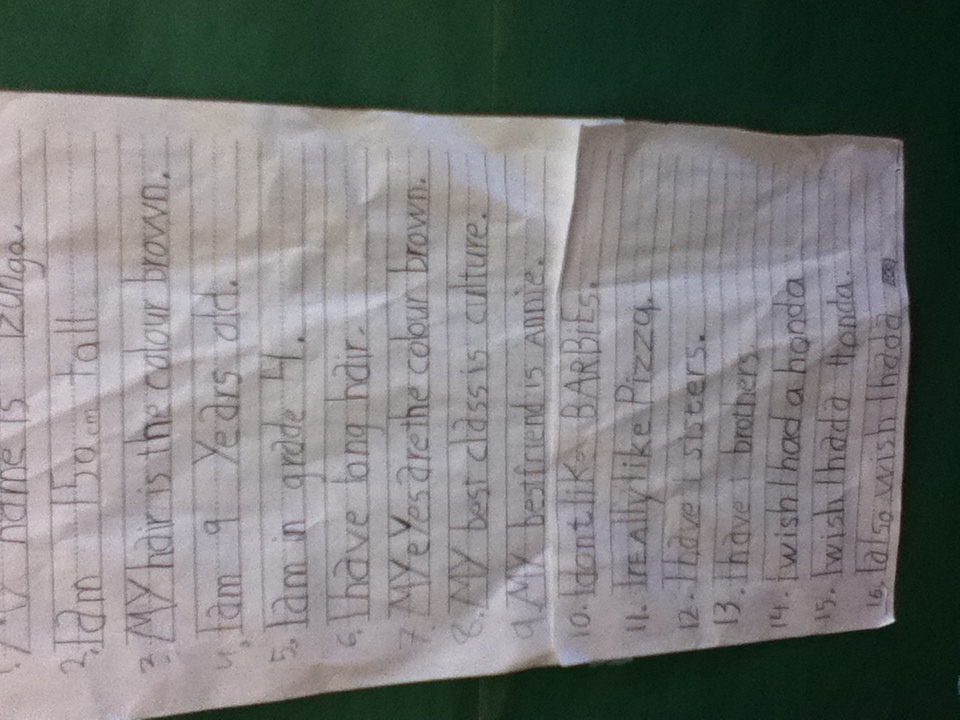 1. My name is Izunga.
2. I am 150cm tall.
3. MY hair is the colour brown.
4. I am 9 Years old.
5. I am in grade 4.
6. I have long hair.
7. MY eYes are the colour brown.
8. MY best class is culture.
9. My best friend is Annie.
10. I dont like BARBiEs.
11. I rEAlly like Pizza.
12. I have 1 sisters.
13. I have 1 brothers
14. I wish I had a honda
15. I wish I had a Honda.
16. I also wish I had a